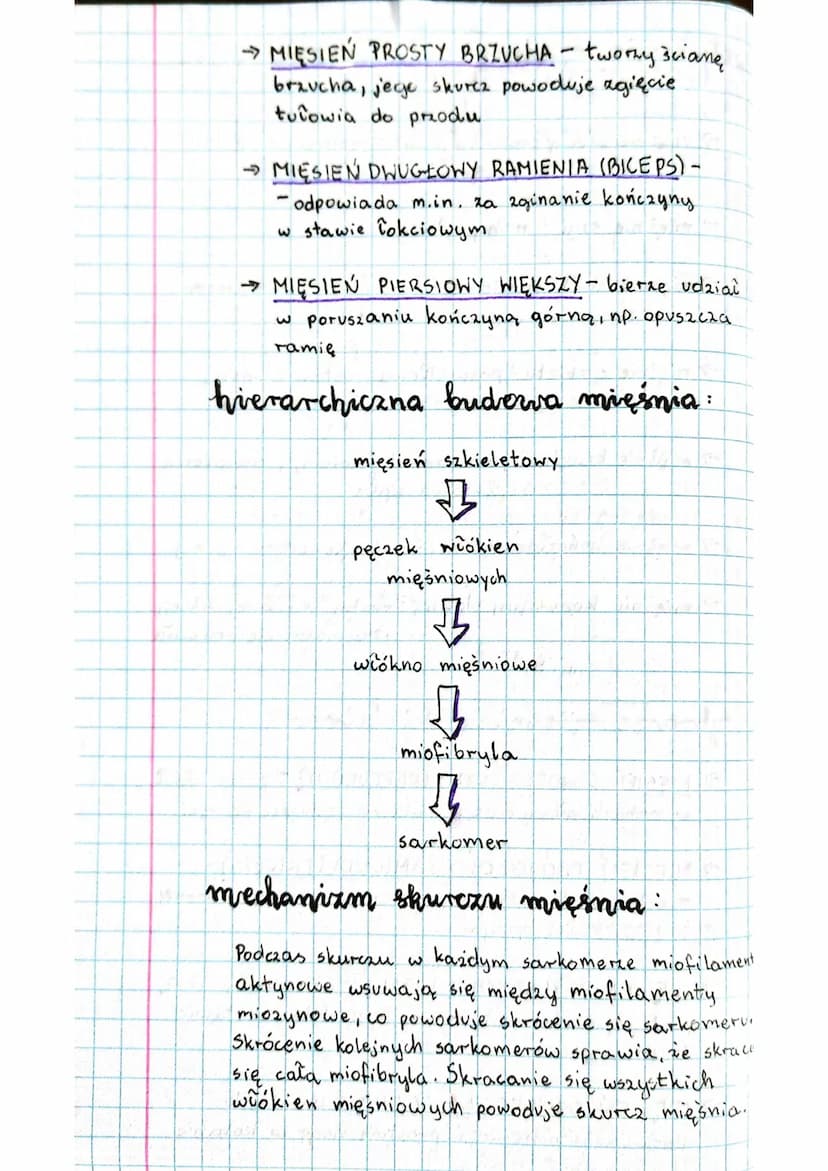 → MIĘSIEŃ PROSTY BRZUCHA – tworzy ścianę
brzucha, jego skurcz powoduje zgięcie
tułowia do przodu
→ MIĘSIEŃ DWUGŁOWY RAMIENIA (BICEPS) –
– odpowiada m.in. za zginanie kończyny
w stawie łokciowym
→ MIĘSIEŃ PIERSIOWY WIĘKSZY – bierze udział
w poruszaniu kończyną górną, np. opuszcza
ramię
hierarchiczna budowa mięśnia:
mięsień szkieletowy
pęczek włókien
mięśniowych
włókno mięśniowe
miofibryla
sarkomer
mechanizm skurczu mięśnia:
Podczas skurczu w każdym sarkomerze miofilament
aktynowe wsuwają się między miofilamenty
miozynowe, co powoduje skrócenie się sarkomeru.
Skrócenie kolejnych sarkomerów sprawia, że skraca
się cała miofibryla. Skracanie się wszystkich
włókien mięśniowych powoduje skurcz mięśnia.